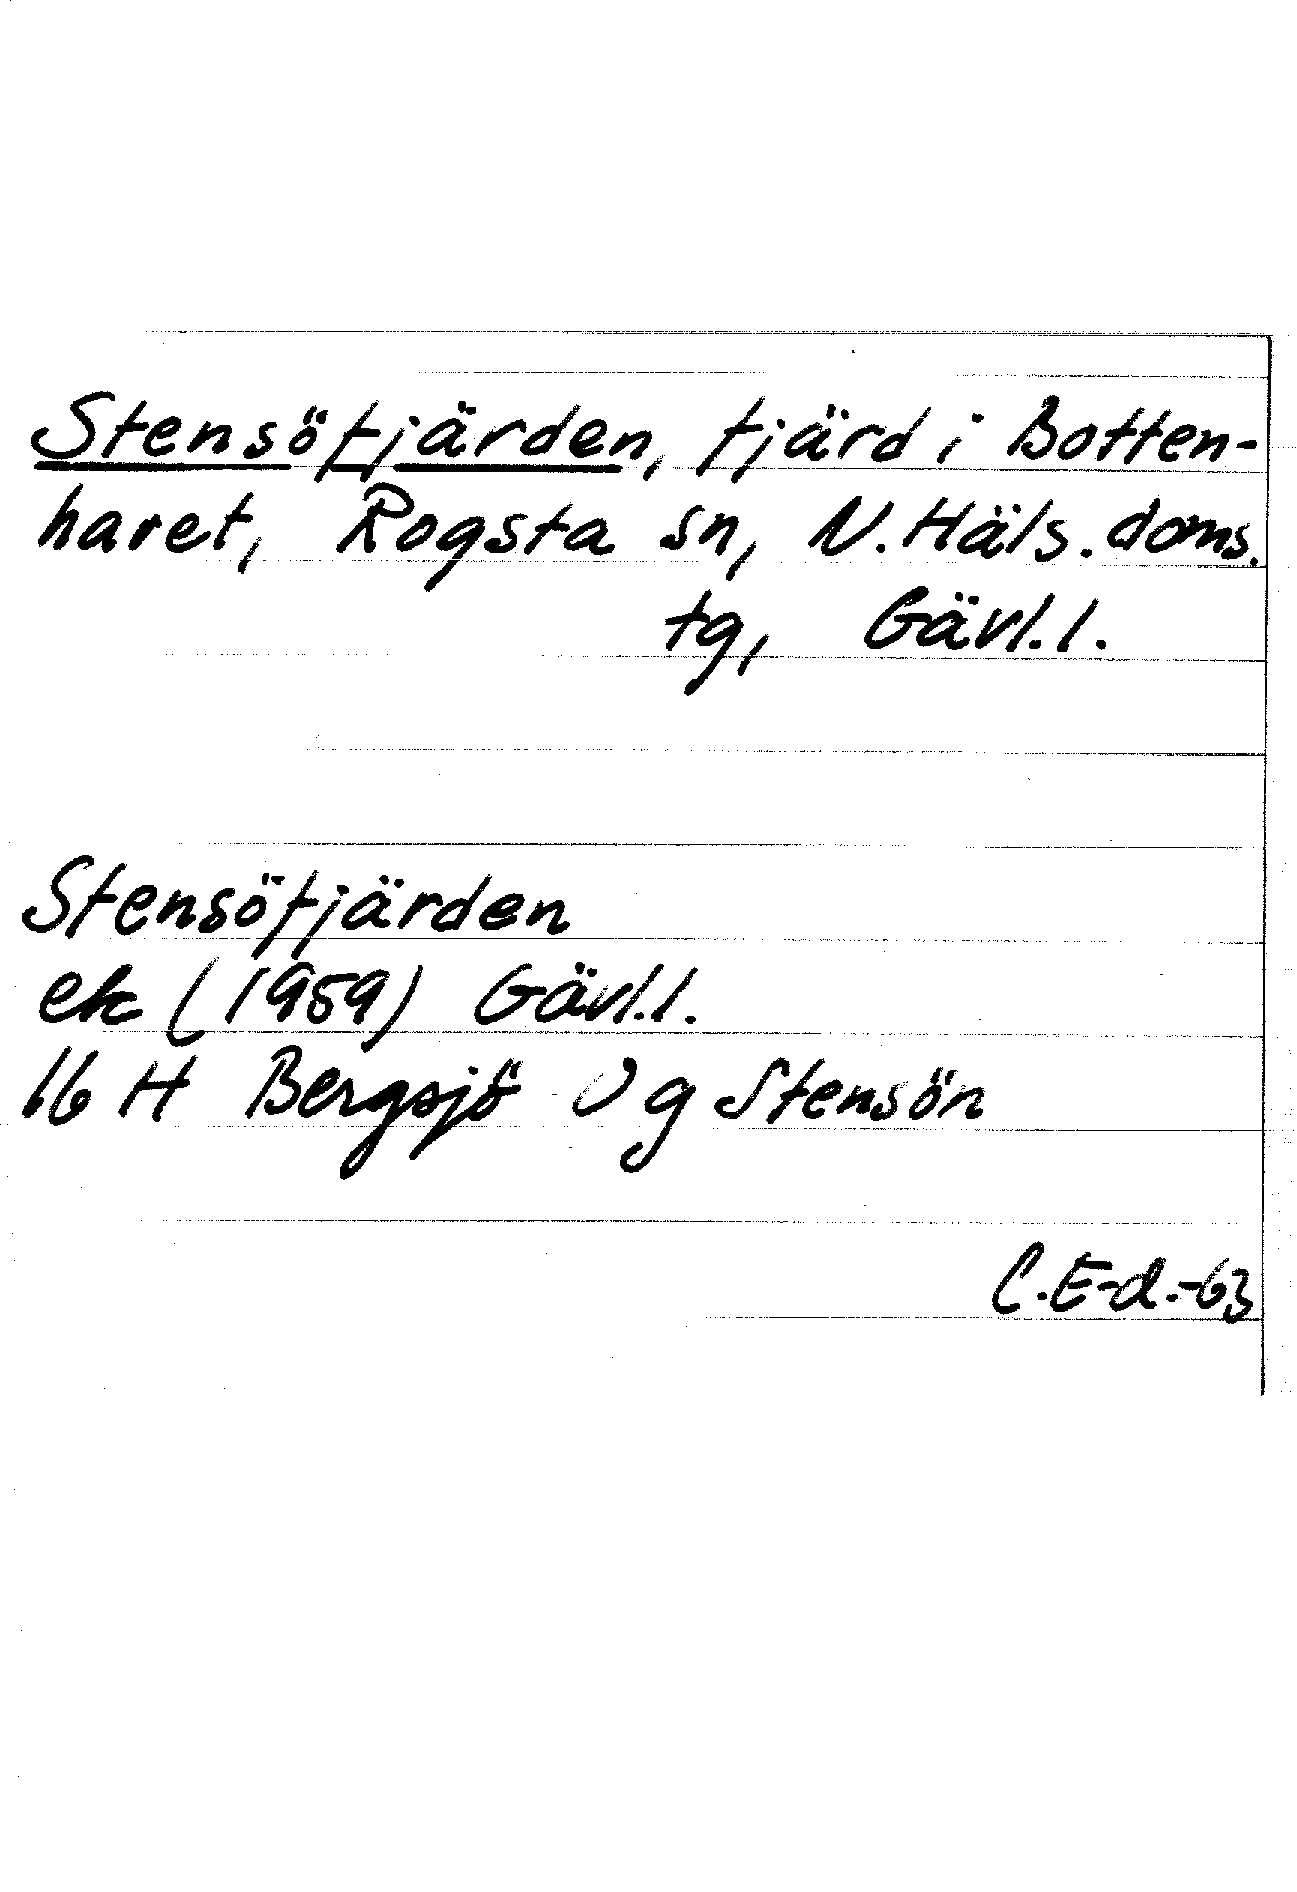 Stensöfjärden, fjärd i Botten-
havet, Rogsta sn, N. Häls. doms.
tg, Gävl. l.
Stensöfjärden
ek (1959) Gävl. l.
16 H Bergsjö g Stensön
C. E-d.-63